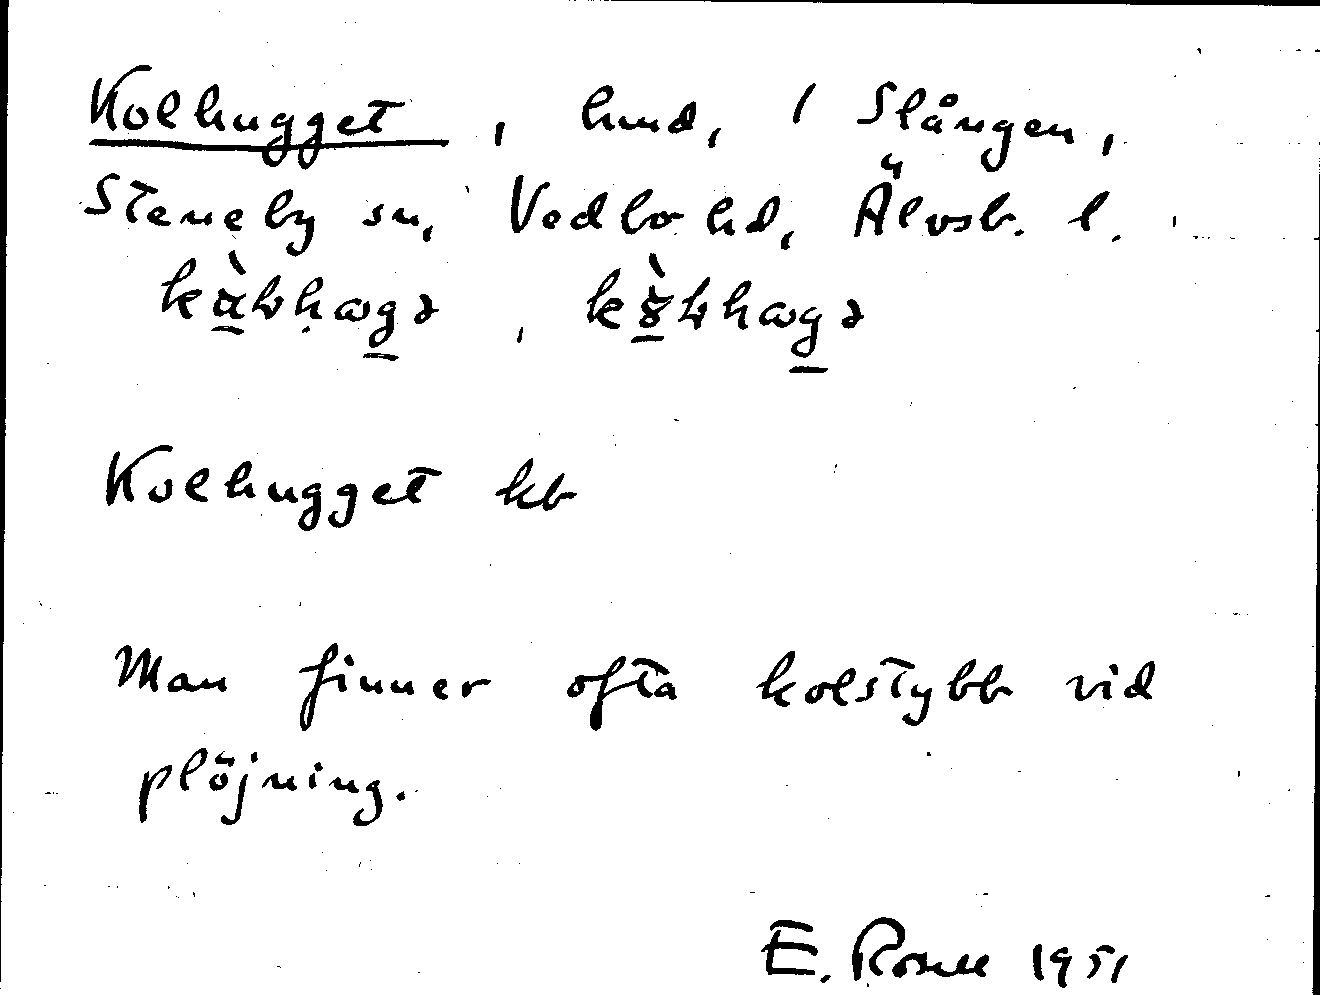 Kolhugget, hmd, 1 Slången,
Steneby sn, Vedbo hd, Älvsb. l.
Kolhugget kb
Man finner ofta kolstybb vid
plöjning.
E. Rosell 1951